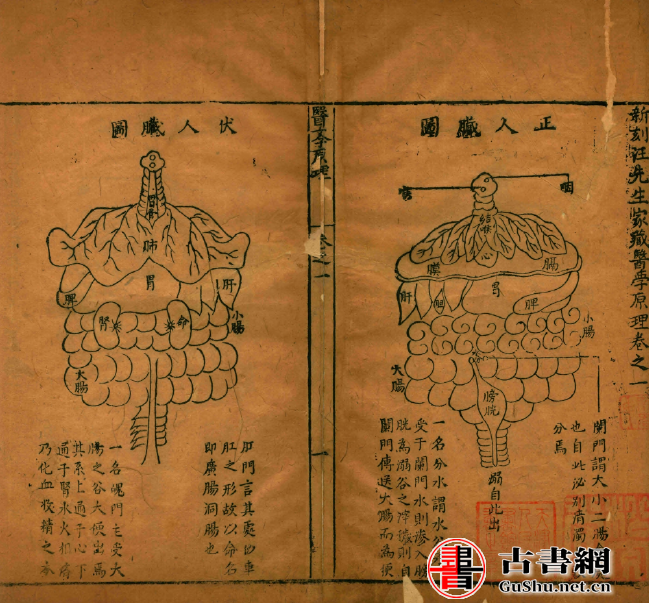 新刻汪先生家藏醫學原理卷之一
正人臟圖
咽
喉
心
膈
膜
肝
胃
脾
小腸
大腸
膀胱
闌門謂大小二腸
也自此泌別清濁
分焉
溺自此出
一名分水謂水
受于闌門水則滲入
胱為溺谷之滓穢則自
闌門傳送大腸而為便
醫學原理
一
伏人臟圖
肺
胃
肝
脾
腎
命
小腸
大腸
肛門言其處似車
肛之形故以命名
即廣腸洞腸也
一名魄門主受大
腸之谷大便出焉
其系上通于心下
通于腎水火相
乃化血收精之本
古書網
GuShu.net.cn